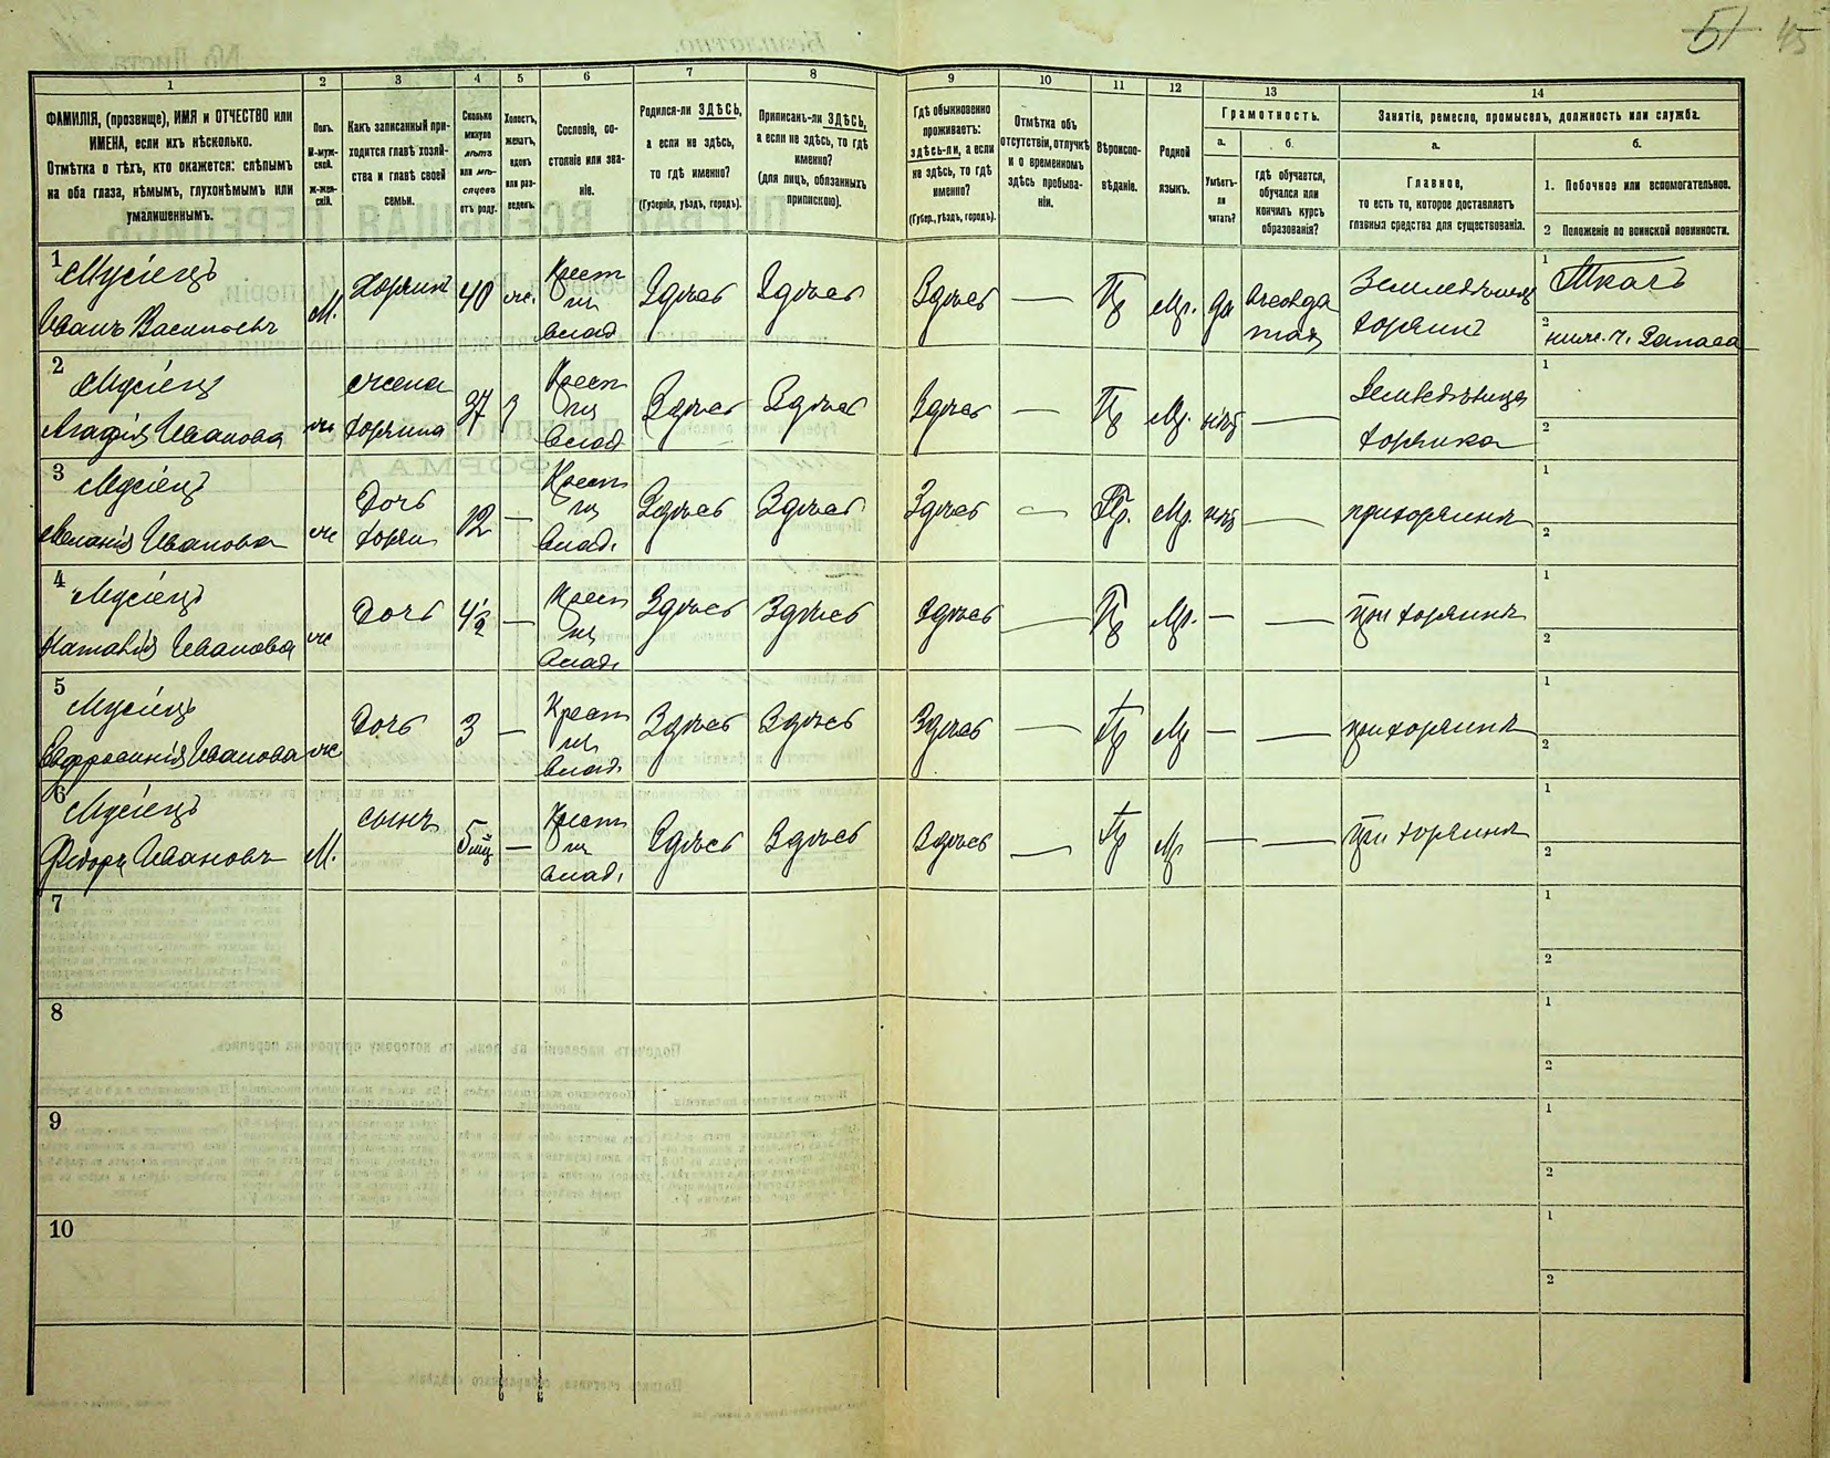 51 45
1 2 3 4 5 6 7 8 9 10 11 12 13 14
ФАМИЛІЯ, (прозвище), ИМЯ и ОТЧЕСТВО или
ИМЕНА, если ихъ нѣсколько.
Отмѣтка о тѣхъ, кто окажется: слѣпымъ
на оба глаза, нѣмымъ, глухонѣмымъ или
умалишеннымъ.
Полъ.
М-муж-
ской.
Ж-жен-
скій.
Какъ записанный при-
ходится главѣ хозяй-
ства и главѣ своей
семьи.
Сколько
минуло
лѣтъ
или мѣ-
сяцевъ
отъ роду.
Холостъ,
женатъ,
вдовъ
или раз-
веденъ.
Сословіе, со-
стояніе или зва-
ніе.
Родился-ли ЗДѢСЬ,
а если не здѣсь,
то гдѣ именно?
(Губернія, уѣздъ, городъ).
Приписанъ-ли ЗДѢСЬ,
а если не здѣсь, то гдѣ
именно?
(для лицъ, обязанныхъ
припискою).
Гдѣ обыкновенно
проживаетъ:
здѣсь-ли, а если
не здѣсь, то гдѣ
именно?
(Губер., уѣздъ, городъ).
Отмѣтка объ
отсутствіи, отлучкѣ
и о временномъ
здѣсь пребыва-
ніи.
Вѣроиспо-
вѣданіе.
Родной
языкъ.
Грамотность.
а. б.
Умѣетъ-
ли
читать?
гдѣ обучается,
обучался или
кончилъ курсъ
образованія?
Занятія, ремесло, промыселъ, должность или служба.
а. б.
Главное,
то есть то, которое доставляетъ
главныя средства для существованія.
1. Побочное или вспомогательное.
2 Положеніе по воинской повинности.
1 Мусіецъ
Иванъ Васильевъ
М. Хозяинъ 40 же. Крест
из
влад Здѣсь Здѣсь Здѣсь — Пр Мр. да
Земледѣлецъ
хозяинъ
1 Ткачъ
2
2 Мусіецъ
Агафія Иванова
ж жена
хозяина 37 Крест
из
влад Здѣсь Здѣсь Здѣсь — Пр Мр. нѣтъ —
хозяйка
1
2
3 Мусіецъ
Меланія Иванова
ж Дочь
хозяи 12 — Крест
из
влад. Здѣсь Здѣсь Здѣсь — Пр. Мр. нѣтъ — при хозяинѣ
1
2
4 Мусіецъ
Наталія Иванова
ж Дочь 4½ — Крест
из
влад. Здѣсь Здѣсь Здѣсь — Пр Мр. — — при хозяинѣ
1
2
5 Мусіецъ
Евфросинія Иванова
ж Дочь 3 — Крест
из
влад. Здѣсь Здѣсь Здѣсь — Пр Мр — — при хозяинѣ
1
2
6 Мусіецъ
Фёдоръ Ивановъ
М. сынъ 5 мц — Крест
из
влад. Здѣсь Здѣсь Здѣсь — Пр Мр — — при хозяинѣ
1
2
7
1
2
8
1
2
9
1
2
10
1
2